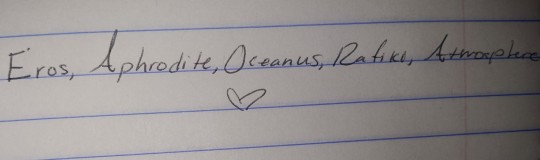 Eros, Aphrodite, Oceanus, Rafiki, Atmosphere